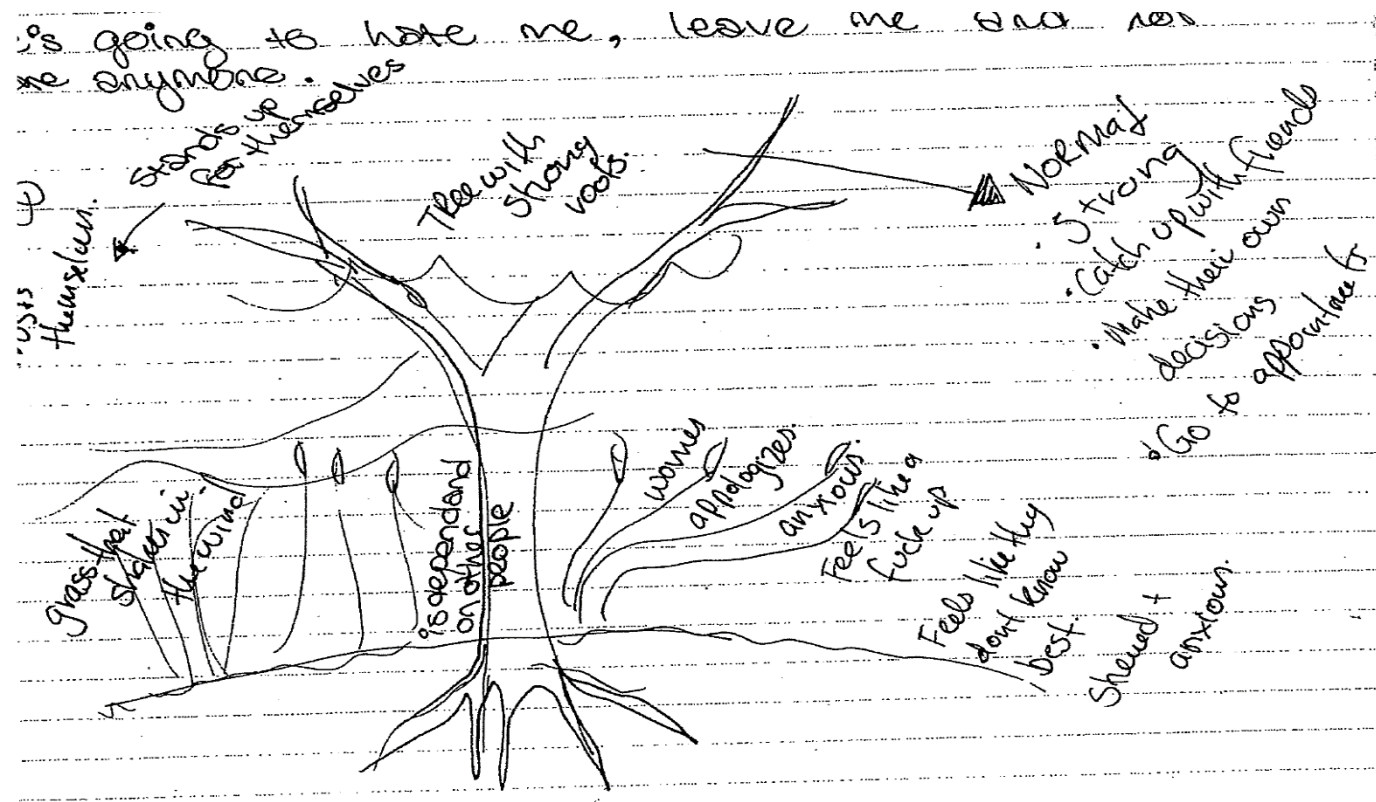 's going to hate me, leave me and not
me anymore.
stands up
for themselves
Tree with
strong
roots.
themselves.
NORMAL
• Strong
• Catch up with friends
• Make their own
decisions
• Go to appointments
grass that
shakes in
the wind
is dependand
on other
people
worries
appologizes.
anxious.
Feels like a
fuck up
Feels like they
dont know
best.
anxious.